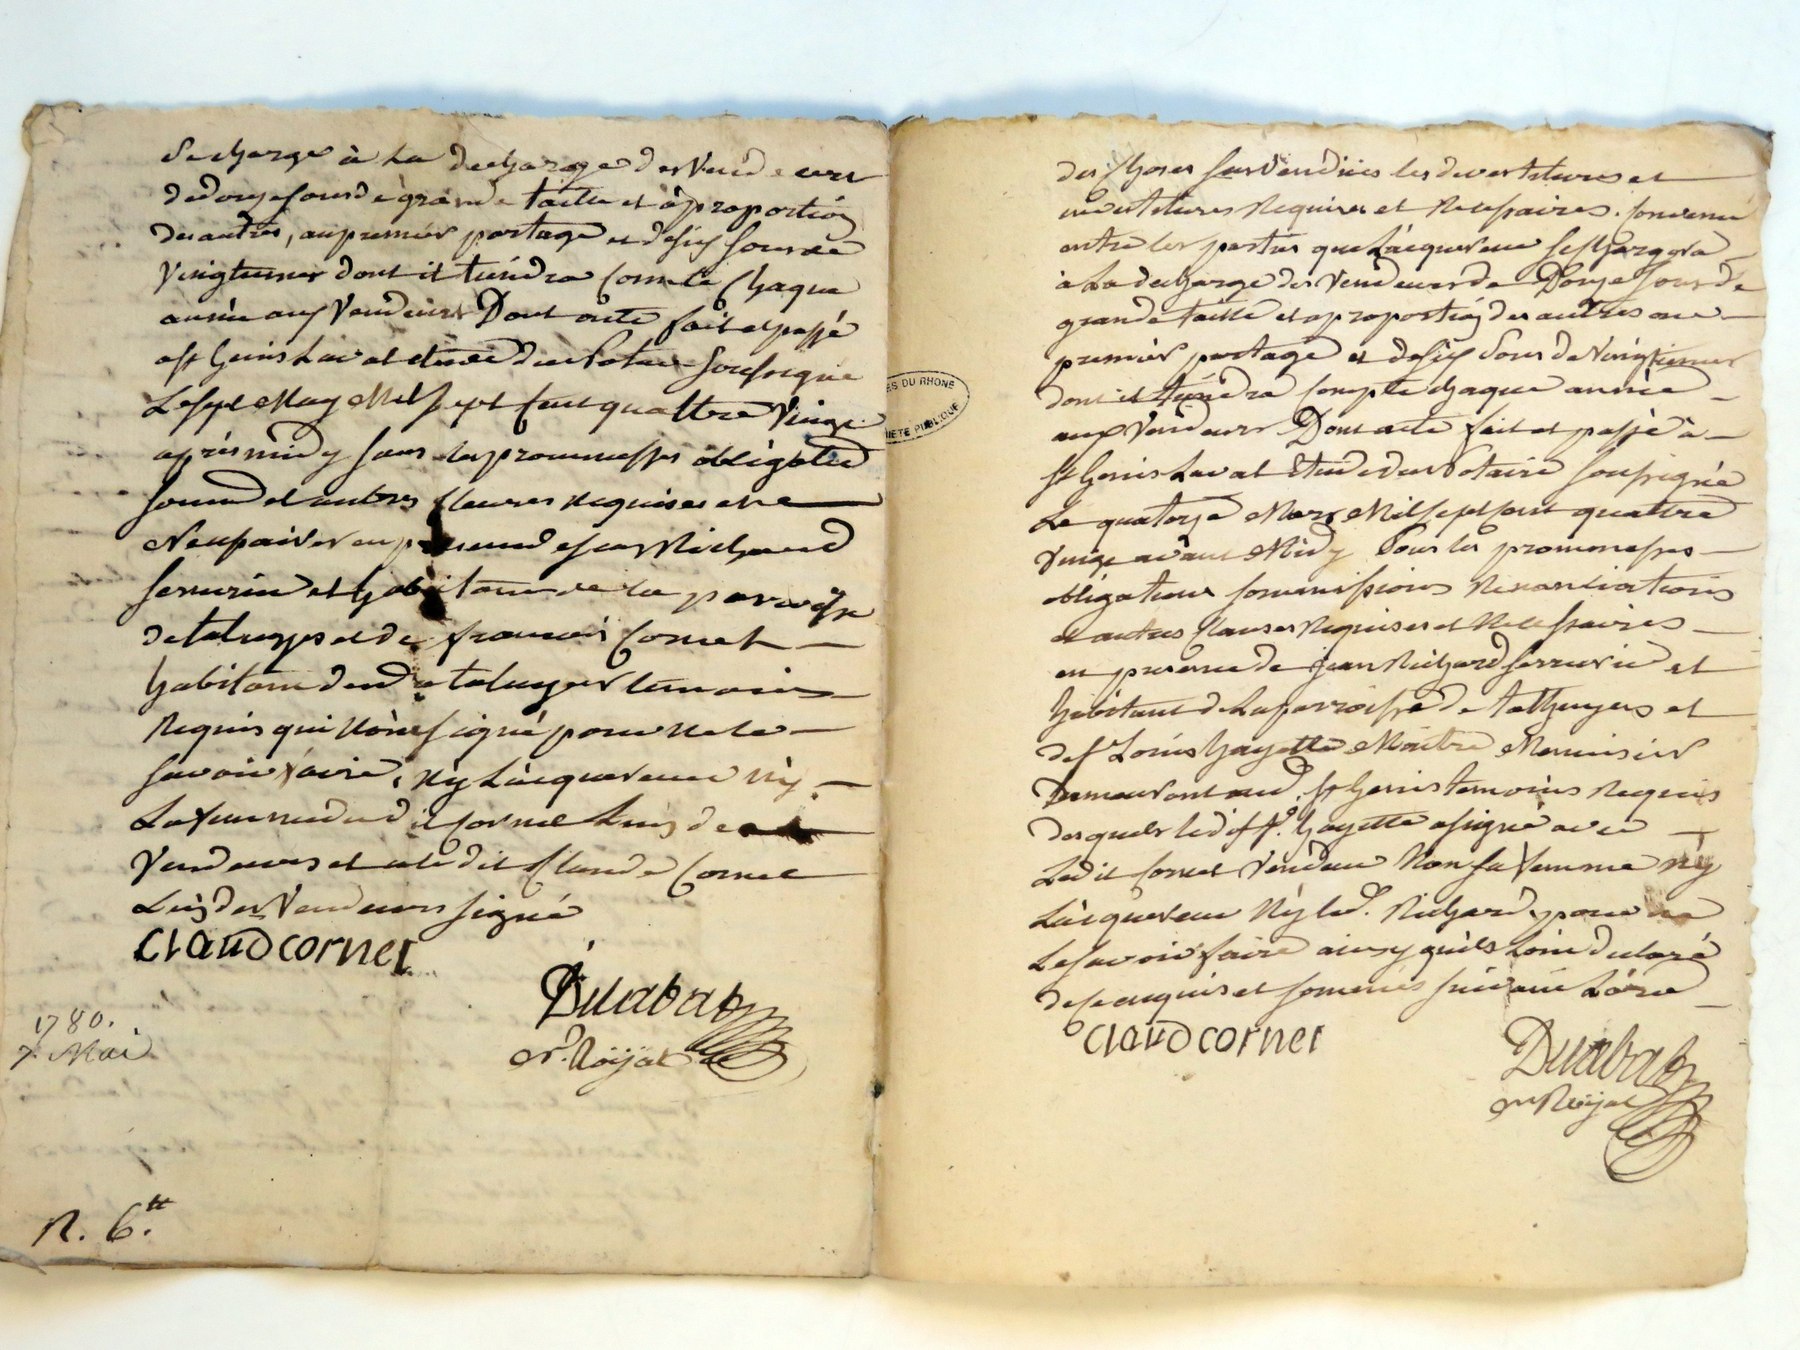 se charge à La decharge des Vendeurs
de douze sous de grande taille et à proportion
des autres, au premier partage et de six sous de
Vingtiemes dont il tiendra Compte Chaque
année aux Vendeurs Dont acte fait et passé
a St Genis Laval etude du Notaire soussigné
Le sept May Mil sept Cent quattre Vingt
après midy sous les prommesses obligations
soum et autres Clauses requises et
Necessaires en presence de jean Richard
serrurier et habitant de la parroisse
de taluyers et de françois Cornet
habitant dud. taluyers temoins
Requis qui n'ont signé pour ne le
savoir faire, Ny L'acquereur Ny
La femme dudit Cornet L'un des
Vendeurs et a ledit Claude Cornet
L'un des Vendeurs signé
Claud cornet
Duabab
n.re Roÿal
1780.
7. Mai
R. 6.tt
ES DU RHONE
IETE PUBLIQUE
des Choses sus Vendües les devestitures et
investitures Requises et Necessaires. Convenu
entre les parties que L'acquereur se Chargera
à La decharge des Vendeurs de Douze sous de
grande taille et a proportion des autres au
premier partage et de six sous de Vingtiemes
dont il tiendra Compte chaque année
aux Vendeurs Dont acte fait et passé à
St Genis Laval Etude du Notaire soussigné
Le quatorze Mars Mil sept Cent quattre
Vingt avant Midy sous les prommesses
obligations soummissions Renonciations
et autres Clauses Requises et Necessaires
en presence de jean Richard serrurier et
habitant de La parroisse de talhuyers et
de Sr Loüis Gayette Maitre Menuisier
Demeurant aud. St Genis temoins Requis
desquels ledit Sr. Gayette a signé avec
Ledit Cornet Vendeur Non sa femme Ny
L'acquereur Ny led. Richard, pour ne
Le savoir faire ainsy qu'ils L'ont declaré
de ce enquis et sommés suivant L'ord
Claud cornet
Duabab
n.re Roÿal